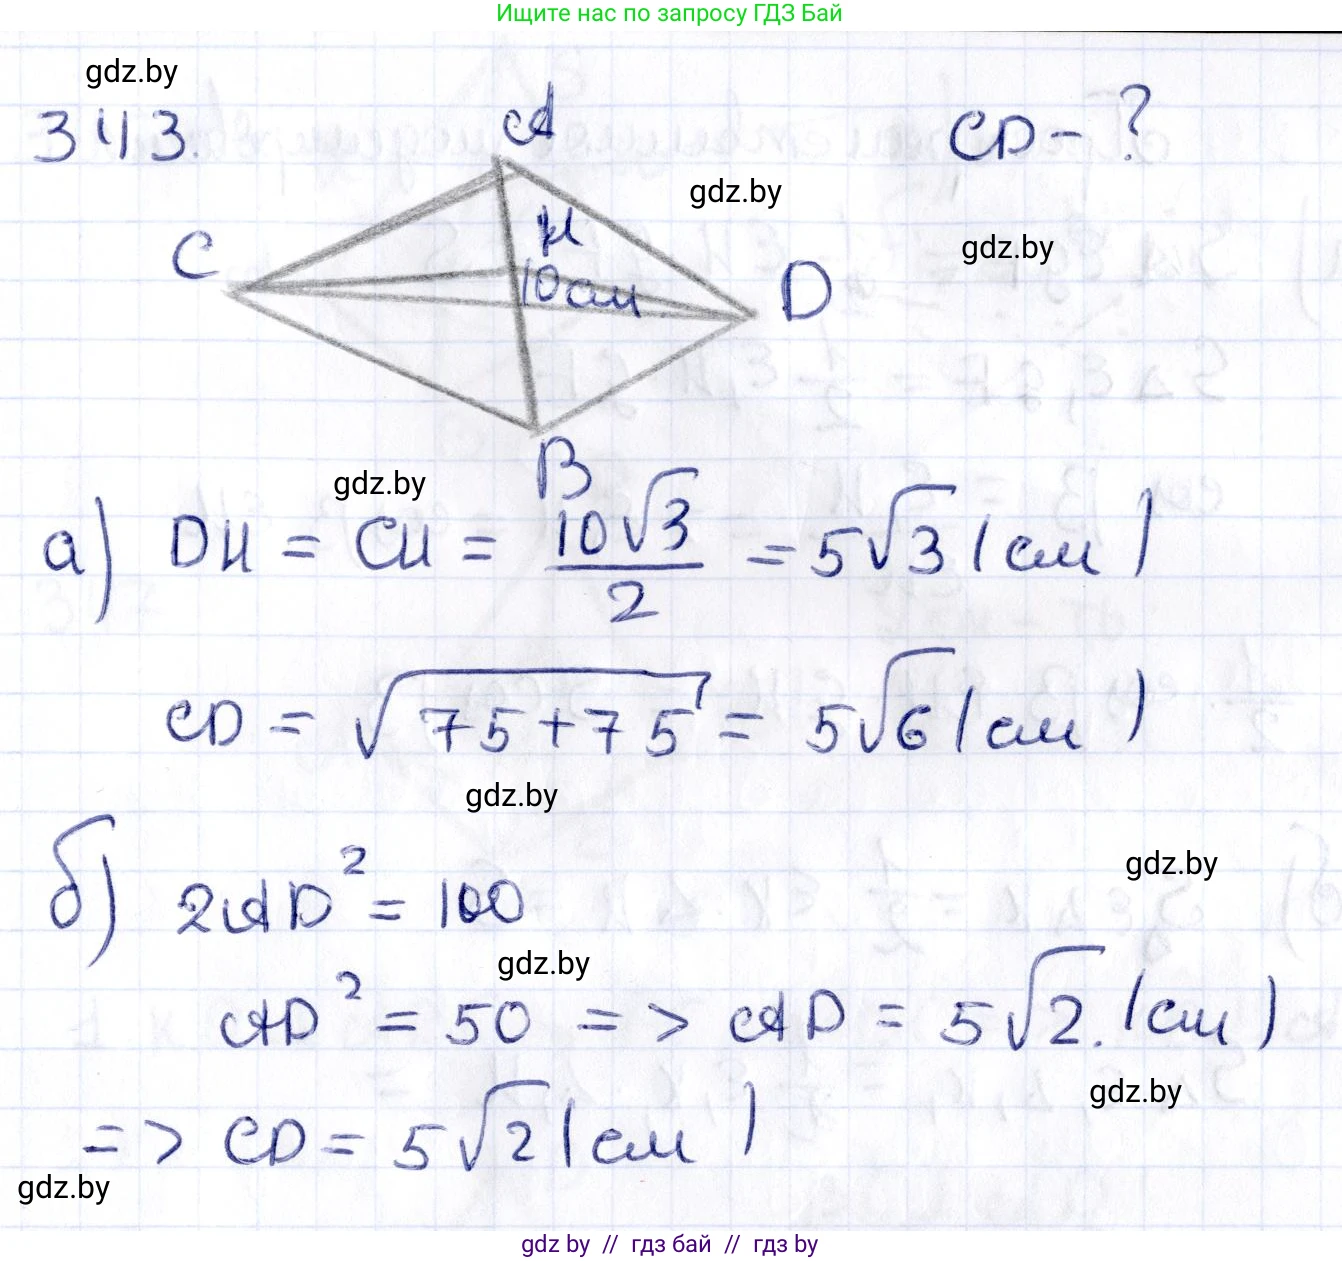 Ищите нас по запросу ГДЗ Бай
gdz.by
343.
A
CD - ?
gdz.by
C
H
gdz.by
10 см
D
B
gdz.by
а) DH = CH = 10√3/2 = 5√3 (см)
CD = √75+75 = 5√6 (см)
gdz.by
б) 2AD² = 100
gdz.by
gdz.by
AD² = 50 => AD = 5√2. (см)
gdz.by
=> CD = 5√2 (см)
gdz.by
gdz by // гдз бай // гдз by